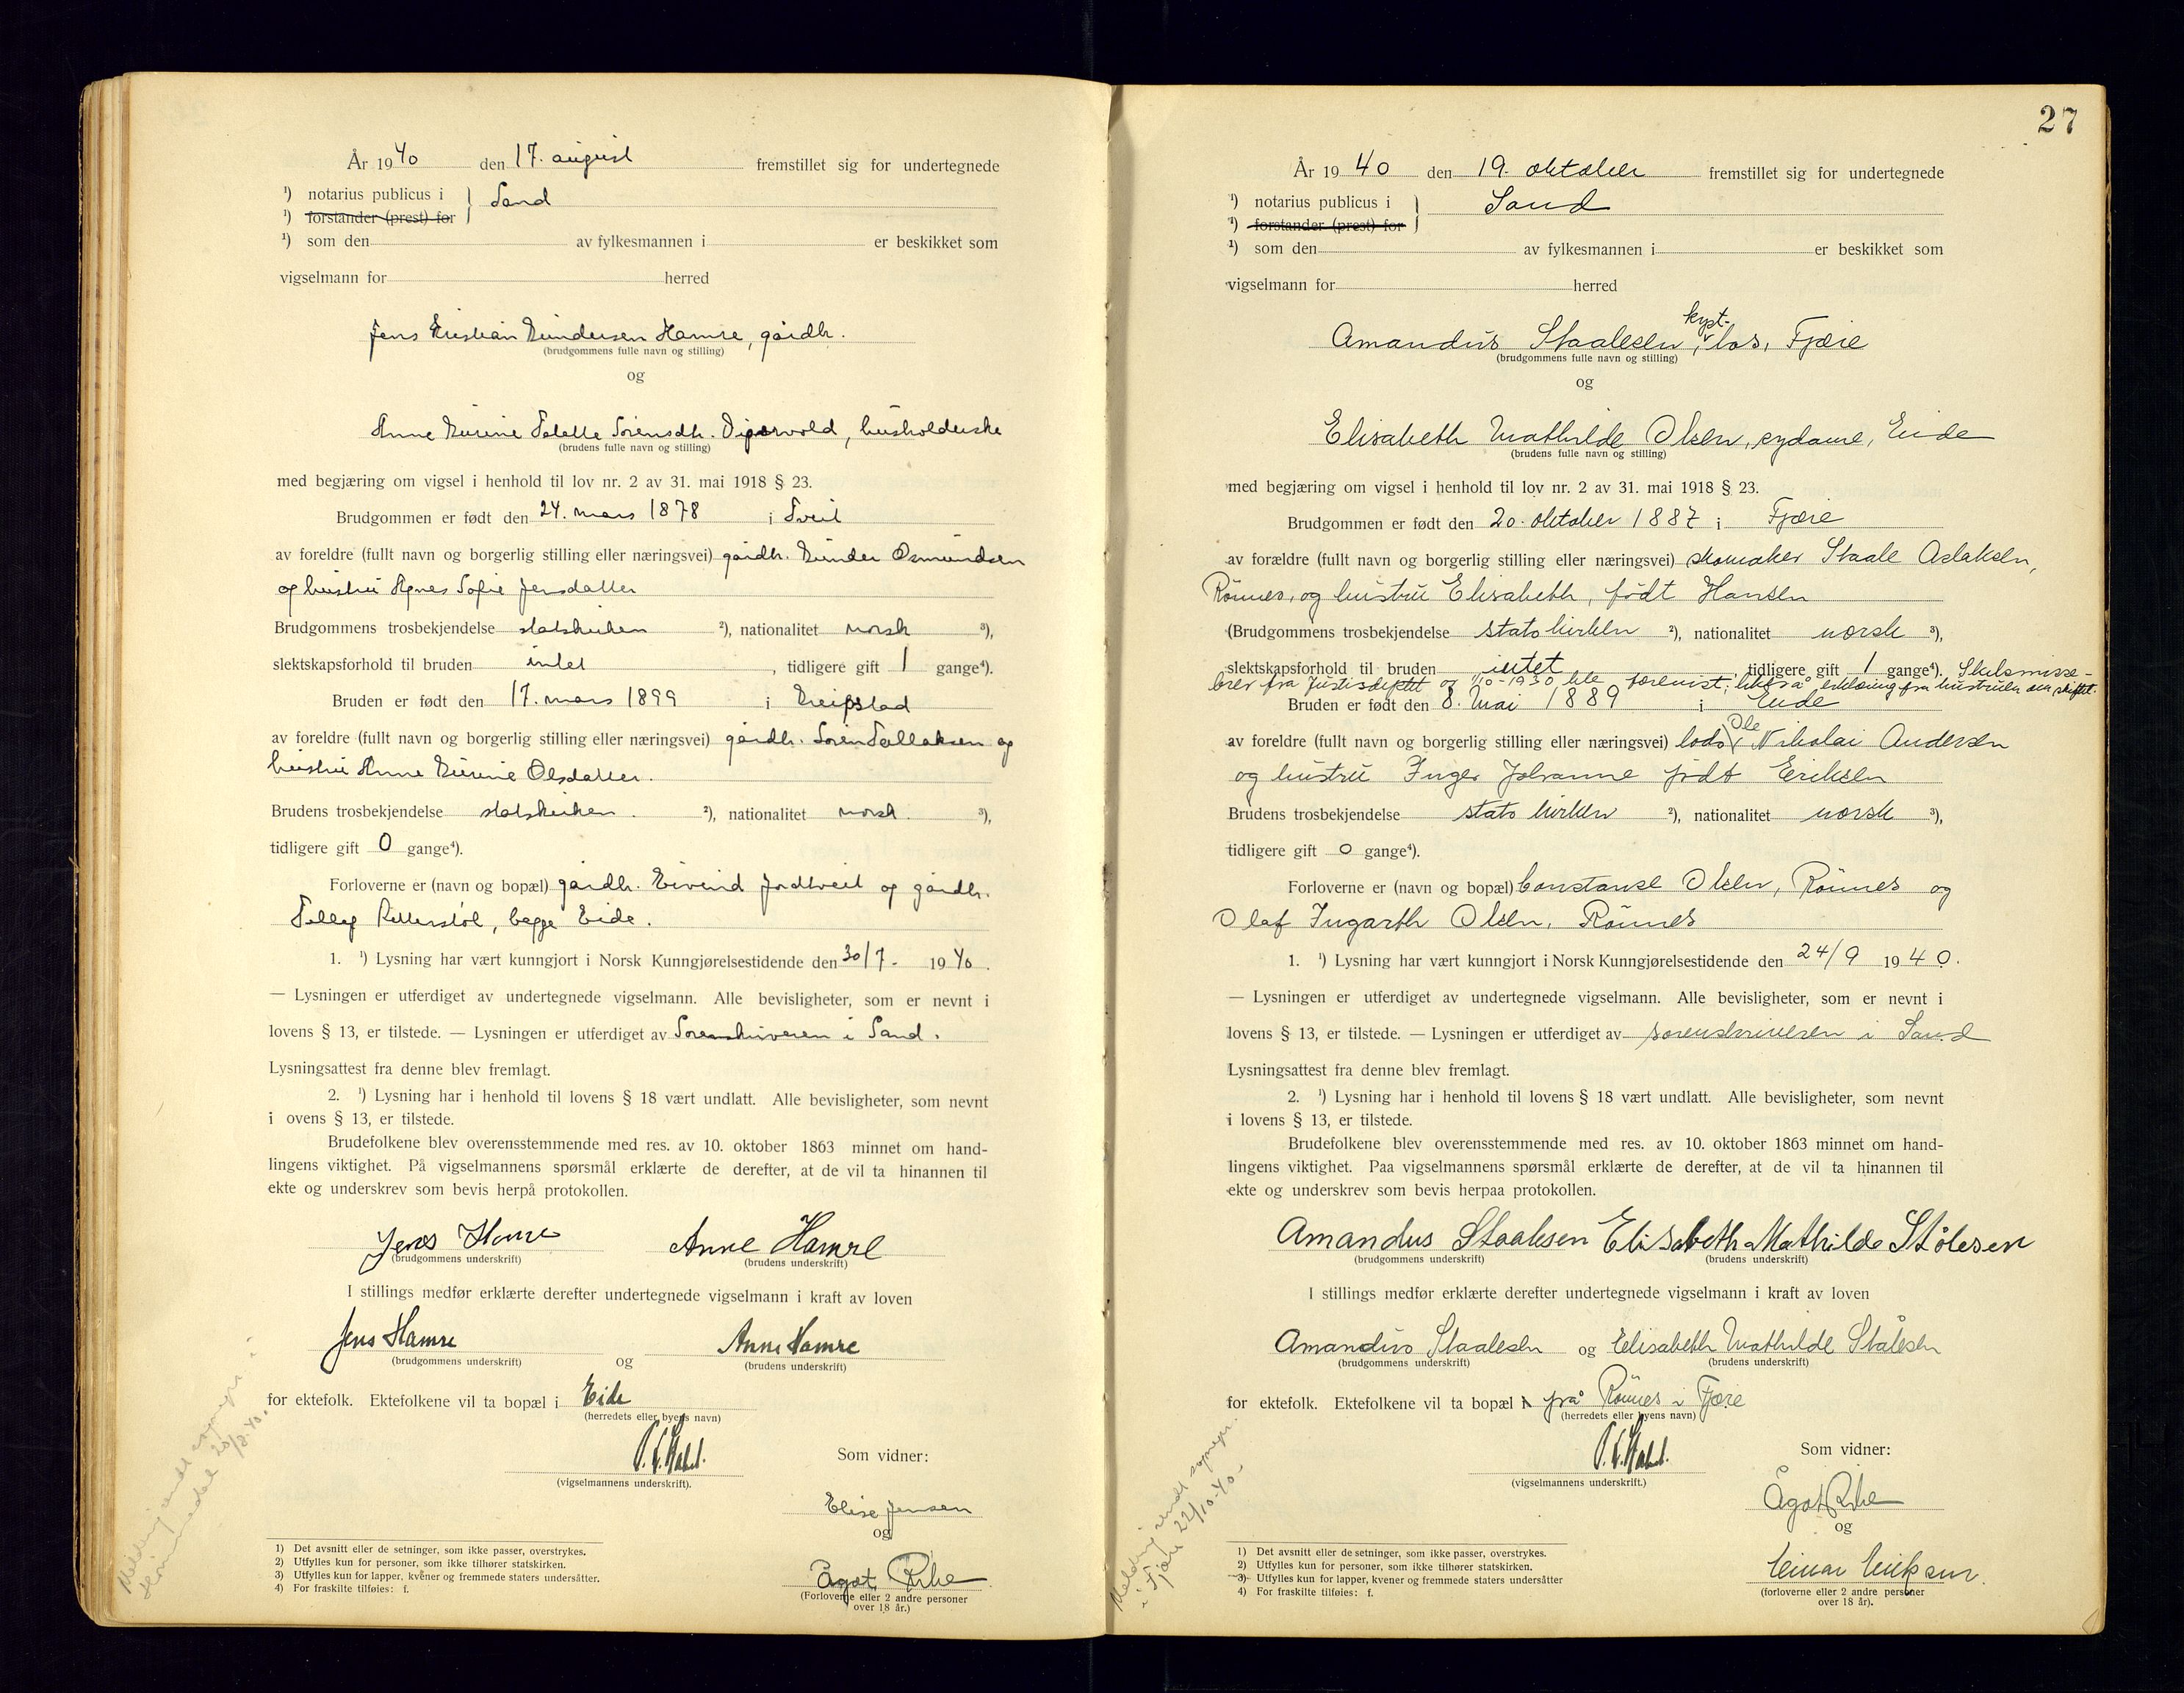 År 1940 den 17. august fremstillet sig for undertegnede
¹) notarius publicus i } Sand
¹) forstander (prest) for
¹) som den av fylkesmannen i er beskikket som
vigselmann for herred
Jens Kristian Gundersen Hamre, gårdbr.
(brudgommens fulle navn og stilling)
og
Anne Gurine Talette Sørensdtr. Digervold, husholderske
(brudens fulle navn og stilling)
med begjæring om vigsel i henhold til lov nr. 2 av 31. mai 1918 § 23.
Brudgommen er født den 24. mars 1878 i Tveit
av foreldre (fullt navn og borgerlig stilling eller næringsvei) gårdbr. Gunder Osmundsen
og hustru Agnes Sofie Jensdatter
Brudgommens trosbekjendelse statskirken ²), nationalitet norsk ³),
slektskapsforhold til bruden intet, tidligere gift 1 gange⁴).
Bruden er født den 17. mars 1899 i Greipstad
av foreldre (fullt navn og borgerlig stilling eller næringsvei) gårdbr. Søren Tallaksen og
hustru Anne Gurine Olsdatter.
Brudens trosbekjendelse statskirken. ²), nationalitet norsk. ³),
tidligere gift 0 gange⁴).
Forloverne er (navn og bopæl) gårdbr. Eivind Jordtveit og gårdbr.
Tellef Retterstøl, begge Eide.
1. ¹) Lysning har vært kunngjort i Norsk Kunngjørelsestidende den 30/7- 1940.
— Lysningen er utferdiget av undertegnede vigselmann. Alle bevisligheter, som er nevnt i
lovens § 13, er tilstede. — Lysningen er utferdiget av Sorenskriveren i Sand.
Lysningsattest fra denne blev fremlagt.
2. ¹) Lysning har i henhold til lovens § 18 vært undlatt. Alle bevisligheter, som nevnt
i ovens § 13, er tilstede.
Brudefolkene blev overensstemmende med res. av 10. oktober 1863 minnet om hand-
lingens viktighet. På vigselmannens spørsmål erklærte de derefter, at de vil ta hinannen til
ekte og underskrev som bevis herpå protokollen.
Jens Hamre Anne Hamre
(brudgommens underskrift) (brudens underskrift)
I stillings medfør erklærte derefter undertegnede vigselmann i kraft av loven
Jens Hamre og Anne Hamre
(brudgommens underskrift) (brudens underskrift)
for ektefolk. Ektefolkene vil ta bopæl i Eide
(herredets eller byens navn)
(vigselmannens underskrift).
Som vidner:
Elise Jensen
og
Ågot
(Forloverne eller 2 andre personer
over 18 år.)
Melding sendt sognepr. i
20/8-40.
1) Det avsnitt eller de setninger, som ikke passer, overstrykes.
2) Utfylles kun for personer, som ikke tilhører statskirken.
3) Utfylles kun for lapper, kvener og fremmede staters undersåtter.
4) For fraskilte tilføies: f.
27
År 1940 den 19. oktober fremstillet sig for undertegnede
¹) notarius publicus i } Sand
¹) forstander (prest) for
¹) som den av fylkesmannen i er beskikket som
vigselmann for herred
kyst-
Amandus Staalesen, los, Fjære
(brudgommens fulle navn og stilling)
og
Elisabeth Mathilde Olsen, sydame, Eide
(brudens fulle navn og stilling)
med begjæring om vigsel i henhold til lov nr. 2 av 31. mai 1918 § 23.
Brudgommen er født den 20. oktober 1887 i Fjære
av forældre (fullt navn og borgerlig stilling eller næringsvei) skomaker Staale Aslaksen,
Rønnes, og hustru Elisabeth, født Hansen
(Brudgommens trosbekjendelse statskirken ²), nationalitet norsk ³),
slektskapsforhold til bruden intet, tidligere gift 1 gange⁴). Skilsmisse-
brev fra Justisdeptet og 1/10-1930 ble forevist; likeså erklæring fra hustruen om skiftet.
Bruden er født den 8. Mai 1889 i Eide
av foreldre (fullt navn og borgerlig stilling eller næringsvei) lods Ole Nikolai Andersen
og hustru Inger Johanne født Eriksen
Brudens trosbekjendelse statskirken ²), nationalitet norsk ³),
tidligere gift 0 gange⁴).
Forloverne er (navn og bopæl) Constanse Olsen, Rønnes og
Olaf Ingarth Olsen, Rønnes
1. ¹) Lysning har vært kunngjort i Norsk Kunngjørelsestidende den 24/9 1940.
— Lysningen er utferdiget av undertegnede vigselmann. Alle bevisligheter, som er nevnt i
lovens § 13, er tilstede. — Lysningen er utferdiget av sorenskriveren i Sand
Lysningsattest fra denne blev fremlagt.
2. ¹) Lysning har i henhold til lovens § 18 vært undlatt. Alle bevisligheter, som nevnt
i lovens § 13, er tilstede.
Brudefolkene blev overensstemmende med res. av 10. oktober 1863 minnet om hand-
lingens viktighet. Paa vigselmannens spørsmål erklærte de derefter, at de vil ta hinannen til
ekte og underskrev som bevis herpaa protokollen.
Amandus Staalesen Elisabeth Mathilde Stålesen
(brudgommens underskrift) (brudens underskrift)
I stillings medfør erklærte derefter undertegnede vigselmann i kraft av loven
Amandus Staalesen og Elisabeth Mathilde Stålesen
(brudgommens underskrift) (brudens underskrift)
for ektefolk. Ektefolkene vil ta bopæl i på Rønnes i Fjære
(herredets eller byens navn)
(vigselmannens underskrift.)
Som vidner:
Ågot
og
Einar Eriksen.
(forloverne eller 2 andre personer
over 18 år).
Melding sendt sognepr.
i Fjære 22/10-40-
1) Det avsnitt eller de setninger, som ikke passer, overstrykes.
2) Utfylles kun for personer, som ikke tilhører statskirken.
3) Utfylles kun for lapper, kvener og fremmede staters undersåtter
4) For fraskilte tilføies: f.